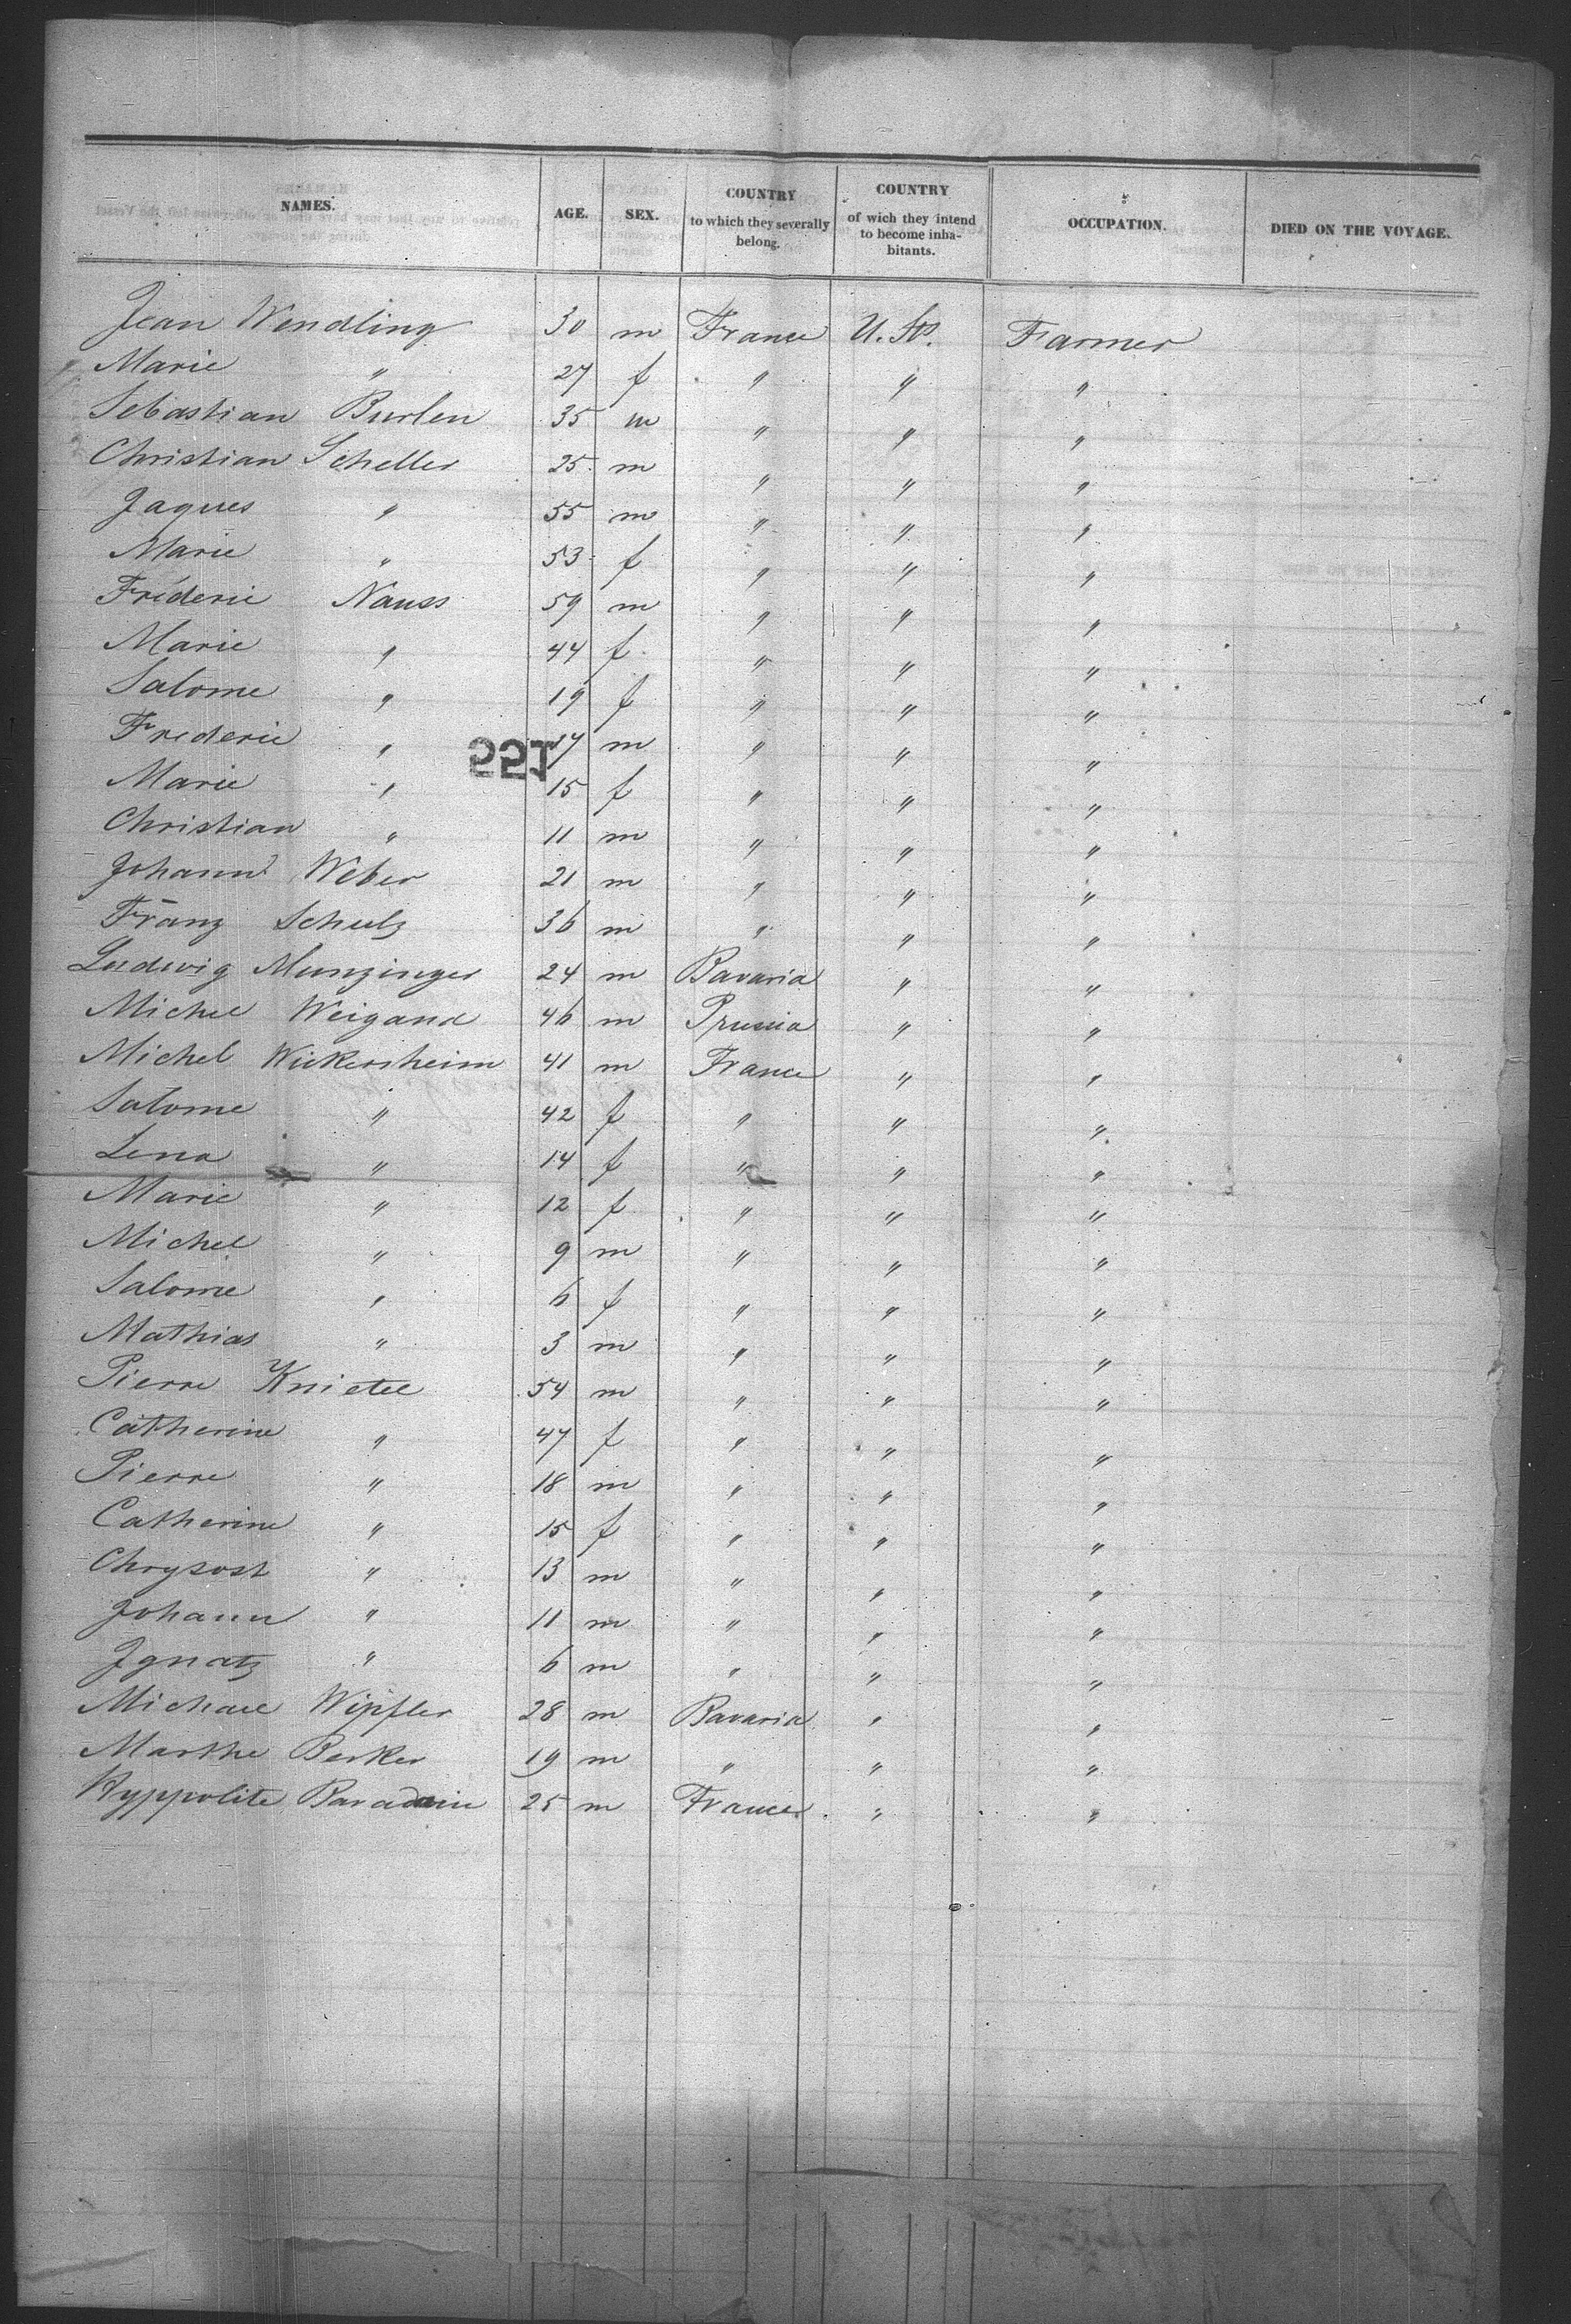 NAMES. AGE. SEX. COUNTRY to which they severally belong. COUNTRY of wich they intend to become inhabitants. OCCUPATION. DIED ON THE VOYAGE.
Jean Wendling 30 m France U. Sts. Farmer
Marie " 27 f " " "
Sebastian Burlen 35 m " " "
Christian Scheller 25 m " " "
Jaques " 55 m " " "
Marie " 53 f " " "
Fréderic Nauss 59 m " " "
Marie " 44 f " " "
Salome " 19 f " " "
Frederic " 17 m " " "
Marie " 15 f " " "
Christian " 11 m " " "
Johann Weber 21 m " " "
Franz Schulz 36 m " " "
Ludwig Munzinger 24 m Bavaria " "
Michel Weigand 46 m Prussia " "
Michel Wickersheim 41 m France " "
Salome " 42 f " " "
Lena " 14 f " " "
Marie " 12 f " " "
Michel " 9 m " " "
Salome " 6 f " " "
Mathias " 3 m " " "
Pierre Knietel 54 m " " "
Catherine " 47 f " " "
Pierre " 18 m " " "
Catherine " 15 f " " "
Chrysost " 13 m " " "
Johann " 11 m " " "
Ignatz " 6 m " " "
Michael Wipfler 28 m Bavaria " "
Marthe Berker 19 m " " "
Hyppolite 25 m France " "